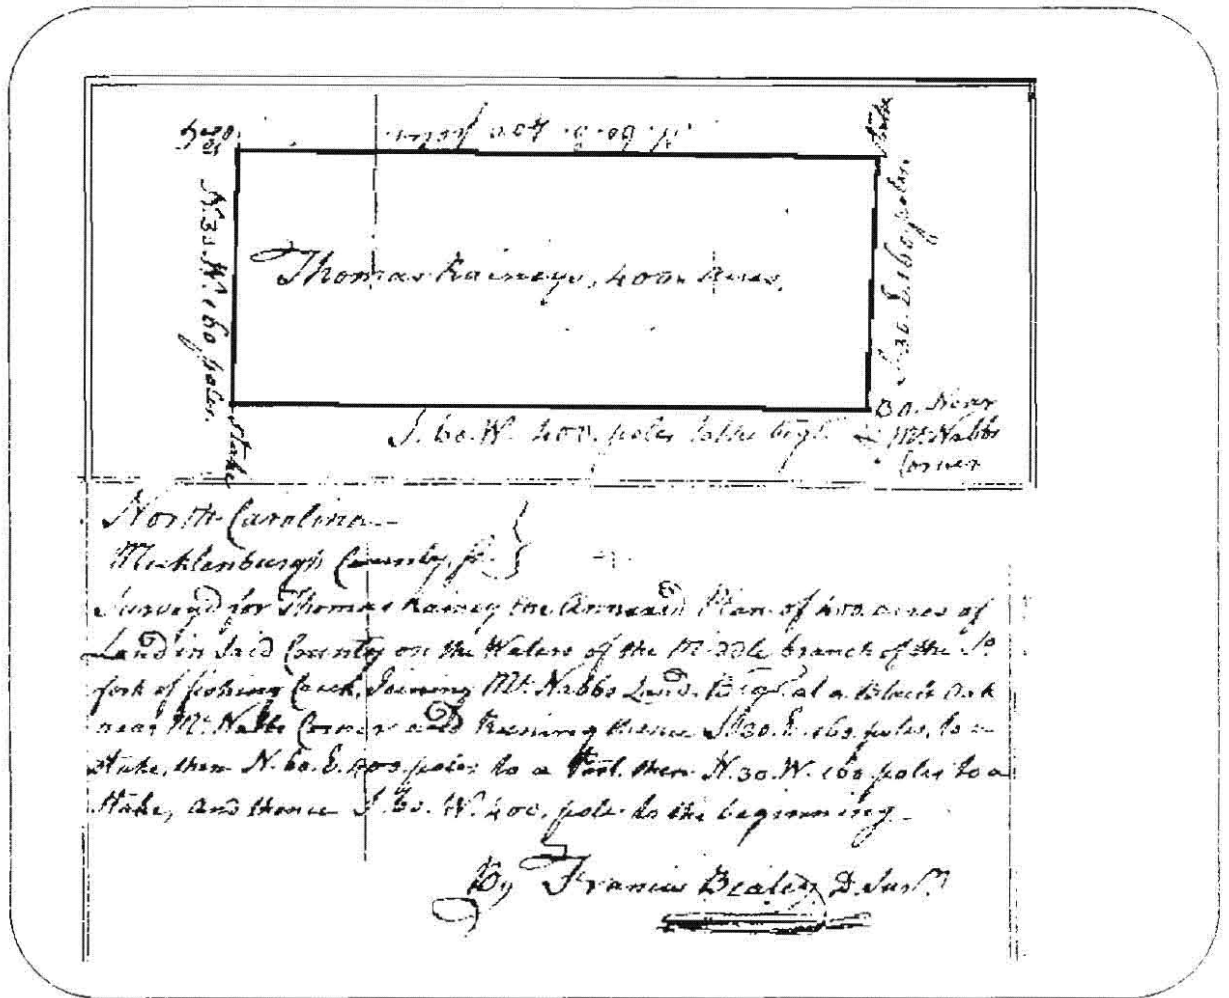 N. 60. E. 400 poles.
Stake
Post
N. 30. W. 160 poles.
Thomas Raineys, 400. Acres.
S. 30. E. 160 poles
BO. Near
McNabbs
Corner
S. 60. W. 400. poles to the beg.
Stake
North Carolina
Mecklenburgh County, Sc. }
Survey'd for Thomas Rainey the Annexed Plan of 400. acres of
Land in said County on the Waters of the Middle branch of the So.
fork of fishing Creek, Joining McNabbs Land. Beg. at a Black Oak
near McNabbs Corner and Running thence S. 30. E. 160. poles, to a
stake, then N. 60. E. 400 poles to a Post. then N. 30. W. 160 poles to a
stake, and thence S. 60. W. 400. pole to the beginning
By Francis Beatey D. Sur.